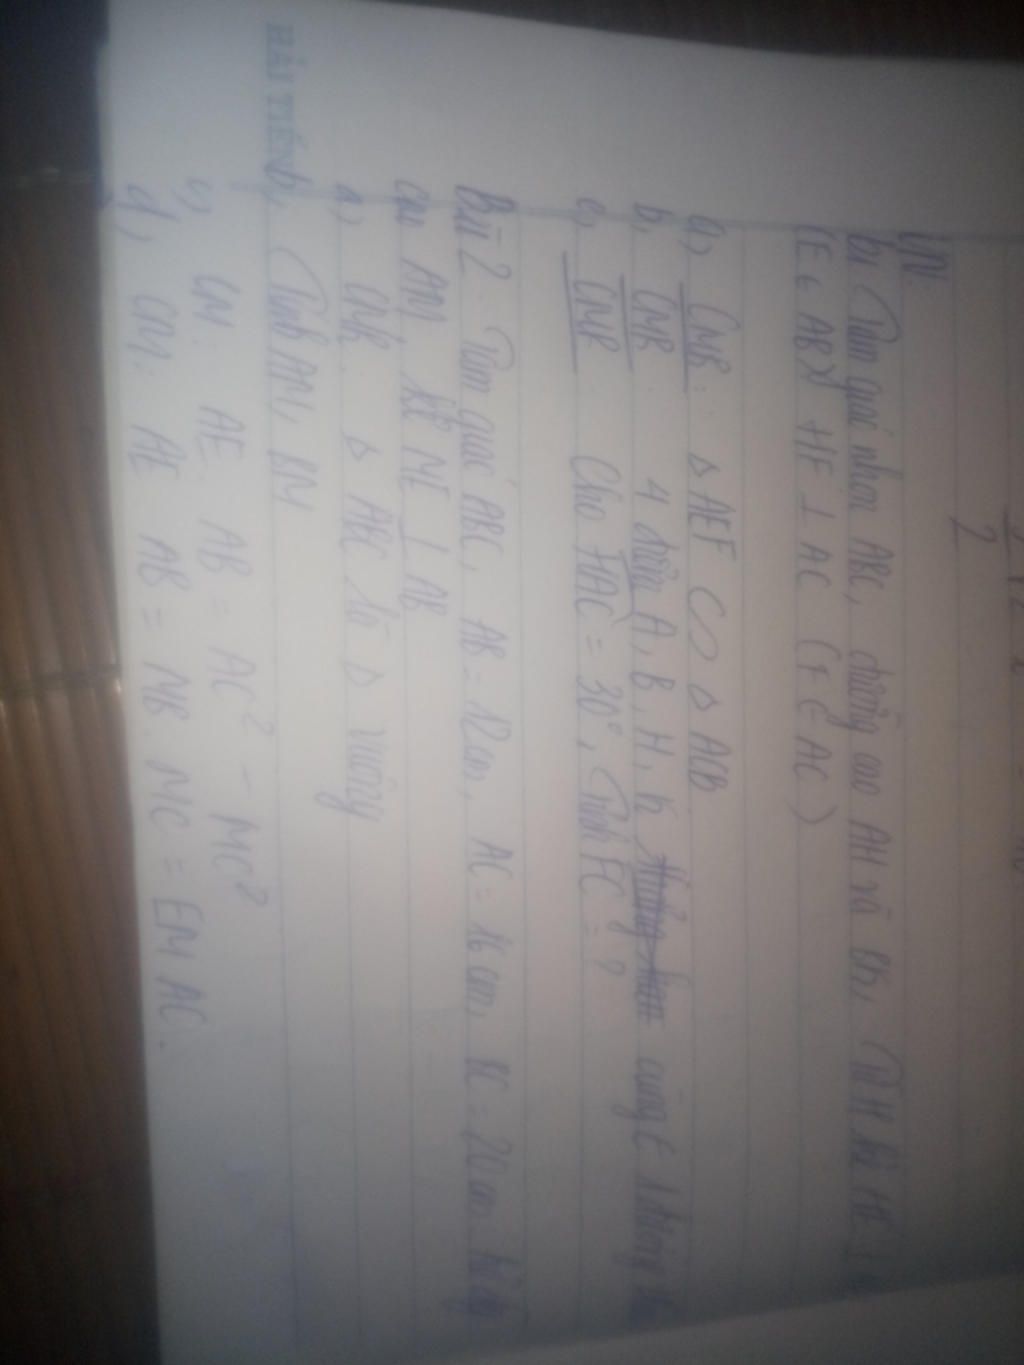 2
BTVN
B1 Tam giác nhọn ABC, đường cao AH và BK, Từ H kẻ HE ⊥
(E ∈ AB) HF ⊥ AC (F ∈ AC)
a, CMR: Δ AEF ∽ Δ ACB
b, CMR: 4 điểm A, B, H, K cùng ∈ 1 đường
c, CMR: Cho HAC = 30°, Tính FC = ?
Bài 2. Tam giác ABC, AB = 12cm, AC = 16 cm, BC = 20 cm. Kẻ đg
cao AM, kẻ ME ⊥ AB
a, CMR. Δ ABC là Δ vuông
b, Tính AM, BM
c, CM: AE. AB = AC² - MC²
d, CM: AE AB = MB. MC = EM AC.
HẢI TIẾN